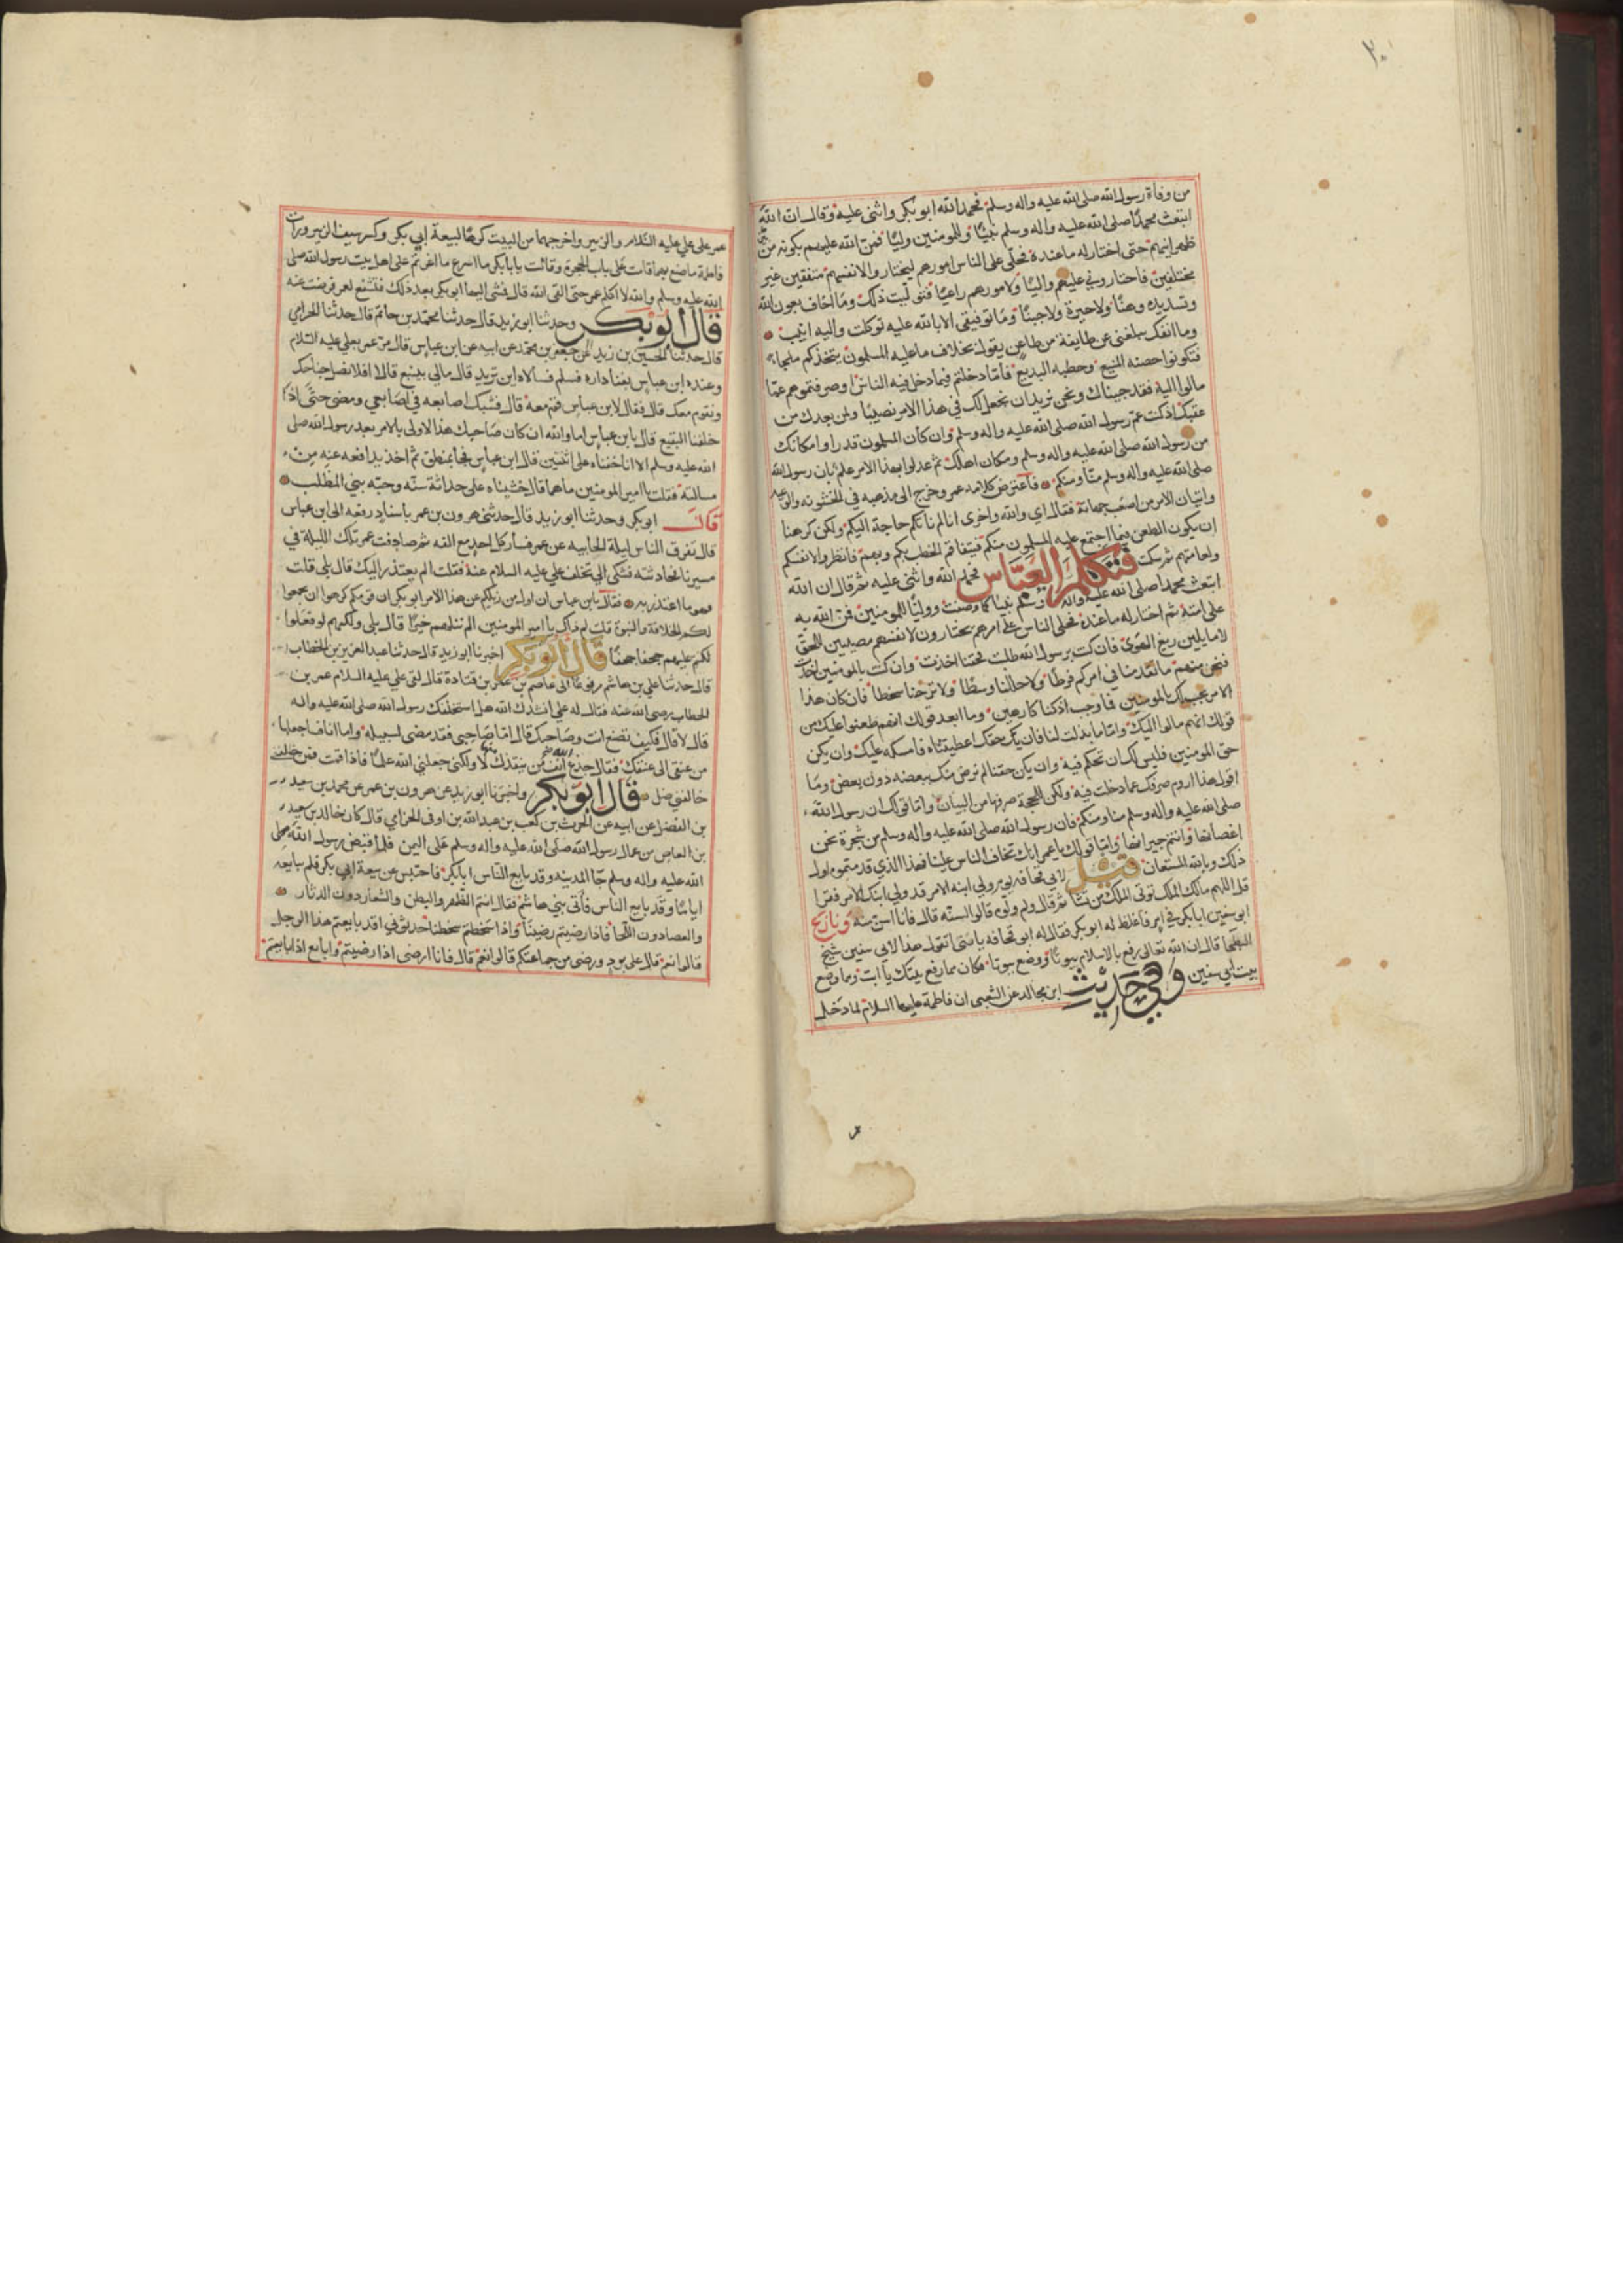 ٣٠
من وفاة رسول الله صلى الله عليه واله وسلم فحمد الله ابو بكر واثنى عليه وقال ان الله
ابتعث محمدًا صلى الله عليه واله وسلم نبيًا وللمومنين وليًا فمن الله عليهم بكونه من
ظهرانيهم حتى اختار له ما عنده فخلى على الناس امورهم ليختاروا لانفسهم متفقين غير
مختلفين فاختاروني عليهم واليًا ولامورهم راعيًا فتوليت ذلك وما اخاف بعون الله
وتسديده وهنًا ولا حيرة ولا جبنًا وما توفيقي الا بالله عليه توكلت واليه انيب
وما انفك يبلغني عن طايفة من طاعن يقول بخلاف ما عليه المسلمون يتخذكم ملجاء
فتكونوا حصنه المنيع وخطبه البديع فاما دخلتم فيما دخل فيه الناس او صرفتموهم عما
مالوا اليه فقد جيناك ونحن نريد ان نجعل لك في هذا الامر نصيبًا ولمن بعدك من
عقبك اذ كنت عم رسول الله صلى الله عليه واله وسلم وان كان المسلمون قد راوا مكانك
من رسول الله صلى الله عليه واله وسلم ومكان اهلك ثم عدلوا بهذا الامر عنكم بان رسول الله
صلى الله عليه واله وسلم منا ومنكم فاعترض كلامه عمر وخرج الى مذهبه في الخشونه والوعيد
واتيان الامر من اصعب جهاته فقال اي والله واخرى انا لم ناتكم حاجة اليكم ولكن كرهنا
ان يكون الطعن فيما اجتمع عليه المسلمون منكم فيتفاقم الخطب بكم وبهم فانظروا لانفسكم
ولعامتهم ثم سكت فتكلم العباس فحمد الله واثنى عليه ثم قال ان الله
ابتعث محمدا صلى الله عليه واله وسلم نبيا كما وصفت ووليًا للمومنين فمن الله به
على امته ثم اختار له ما عنده فخلى الناس على امرهم يختارون لانفسهم مصيبين للحق
لا مايلين بزيغ الهوى فان كنت برسول الله طلبت فحقنا اخذت وان كنت بالمومنين اخذت
فنحن منهم ما تقدمنا في امركم فرطًا ولا حللنا وسطًا ولا نزحنا سخطا فان كان هذا
الامر يجب لك بالمومنين فما وجب اذ كنا كارهين وما ابعد قولك انهم طعنوا عليك من
قولك انهم مالوا اليك واما ما بذلت لنا فان يكن حقك اعطيتناه فامسكه عليك وان يكن
حق المومنين فليس لك ان تحكم فيه وان يكن حقنا لم نرض منك ببعضه دون بعض وما
اقول هذا اروم صرفك عما دخلت فيه ولكن للحجة صرفها من البيان واما قولك ان رسول الله
صلى الله عليه واله وسلم منا ومنكم فان رسول الله صلى الله عليه واله وسلم من شجرة نحن
اغصانها وانتم جيرانها واما قولك يا عمر انك تخاف الناس علينا فهذا الذي قدمتموه اول
ذلك وبالله المستعان قيل لابي قحافه يوم ولي ابنه الامر قد ولي ابنك الامر فقرا
قل اللهم مالك الملك توتي الملك من تشا ثم قال ولم ولوه قالوا لسنه قال فانا اسن منه ونازع
ابو سفين ابا بكر في امر فاغلظ له ابو بكر فقال له ابو قحافه يا بني اتقول هذا لابي سفين شيخ
البطحا قال ان الله تعالى رفع بالاسلام بيوتًا ووضع بيوتا فكان مما رفع بيتك يا ابت ومما وضع
بيت ابي سفين وفي حديث ابن مجالد عن الشعبي ان فاطمة عليها السلام لما دخل
عمر على علي عليه السلام والزبير واخرجهما من البيت كرهًا لبيعة ابي بكر وكسر سيف الزبير ورات
فاطمة ما صنع بهما قامت على باب الحجرة وقالت يا بابا بكر ما اسرع ما اغرتم على اهل بيت رسول الله صلى
الله عليه وسلم والله لا اكلم عمر حتى القى الله قال فمشى اليها ابو بكر بعد ذلك فتشفع لعمر فرضت عنه
قال ابو بكر وحدثنا ابو زيد قال حدثنا محمد بن حاتم قال حدثنا الحرامي
قال حدثنا الحسين بن زيد عن جعفر بن محمد عن ابيه عن ابن عباس قال مر عمر بعلي عليه السلام
وعنده ابن عباس بفنا داره فسلم فسالاه اين تريد قال مالي بينبع قالا افلا نصل جناحك
ونقوم معك قال فقال لابن عباس قم معه قال فشبك اصابعه في اصابعي ومضى حتى اذا
خلفنا البقيع قال يا بن عباس اما والله ان كان صاحبك هذا الاولى بالامر بعد رسول الله صلى
الله عليه وسلم الا انا خفناه على اثنتين قال ابن عباس فجا بمنطق ثم اخذ بدا فعه عنه من
مسالته فقلت يا امير المومنين ما هما قال خشيناه على حداثة سنه وحبه بني المطلب
قال ابو بكر وحدثنا ابو زيد قال حدثني هرون بن عمر باسناد رفعه الى ابن عباس
قال تفرق الناس ليلة الجابيه عن عمر فسار كل احد مع الفه ثم صادفت عمر تلك الليلة في
مسيرنا فحادثته فشكى الي تخلف علي عليه السلام عنه فقلت الم يعتذر اليك قال بلى قلت
فهو ما اعتذر به فقال يا بن عباس ان اول من زيلكم عن هذا الامر ابو بكر ان قومكم كرهوا ان يجمعوا
لكم الخلافة والنبوة قلت لم ذاك يا امير المومنين الم ننلهم خيرًا قال بلى ولكنهم لو فعلوا
لكنتم عليهم جحفا جحفًا قال ابو بكر اخبرنا ابو زيد قال حدثنا عبد العزيز بن الخطاب
قال حدثنا علي بن هاشم رفوعًا الى عاصم بن عمر بن قتادة قال لقي علي عليه السلام عمر بن
الخطاب رضي الله عنه فقال له علي انشدك الله هل استخلفك رسول الله صلى الله عليه واله
قال لا قال فكيف تصنع انت وصاحبك قال اما صاحبي فقد مضى لسبيله واما انا فساجعلها
من عنقي الى عنقك فقال جذع الله انف من ينقذك منها لا ولكني جعلني الله علمًا فاذا قمت فمن
خالفني ضل قال ابو بكر واخبرنا ابو زيد عن هرون بن عمر عن محمد بن سعيد
بن الفضل عن ابيه عن الحرث بن كعب بن عبد الله بن اوفى الخزامي قال كان خالد بن سعيد
بن العاص من عمال رسول الله صلى الله عليه واله وسلم على اليمن فلما قبض رسول الله صلى
الله عليه واله وسلم جا المدينه وقد بايع الناس ابا بكر فاحتبس عن بيعة ابي بكر فلم يبايعه
ايامًا وقد بايع الناس فاتى بني هاشم فقال انتم الظهر والبطن والشعار دون الدثار
والعصا دون اللحا فاذا رضيتم رضينا واذا سخطتم سخطنا حدثوني اقد بايعتم هذا الرجل
قالوا نعم قال على برد ورضى من جماعتكم قالوا نعم قال فانا ارضى اذا رضيتم وابايع اذا بايعتم